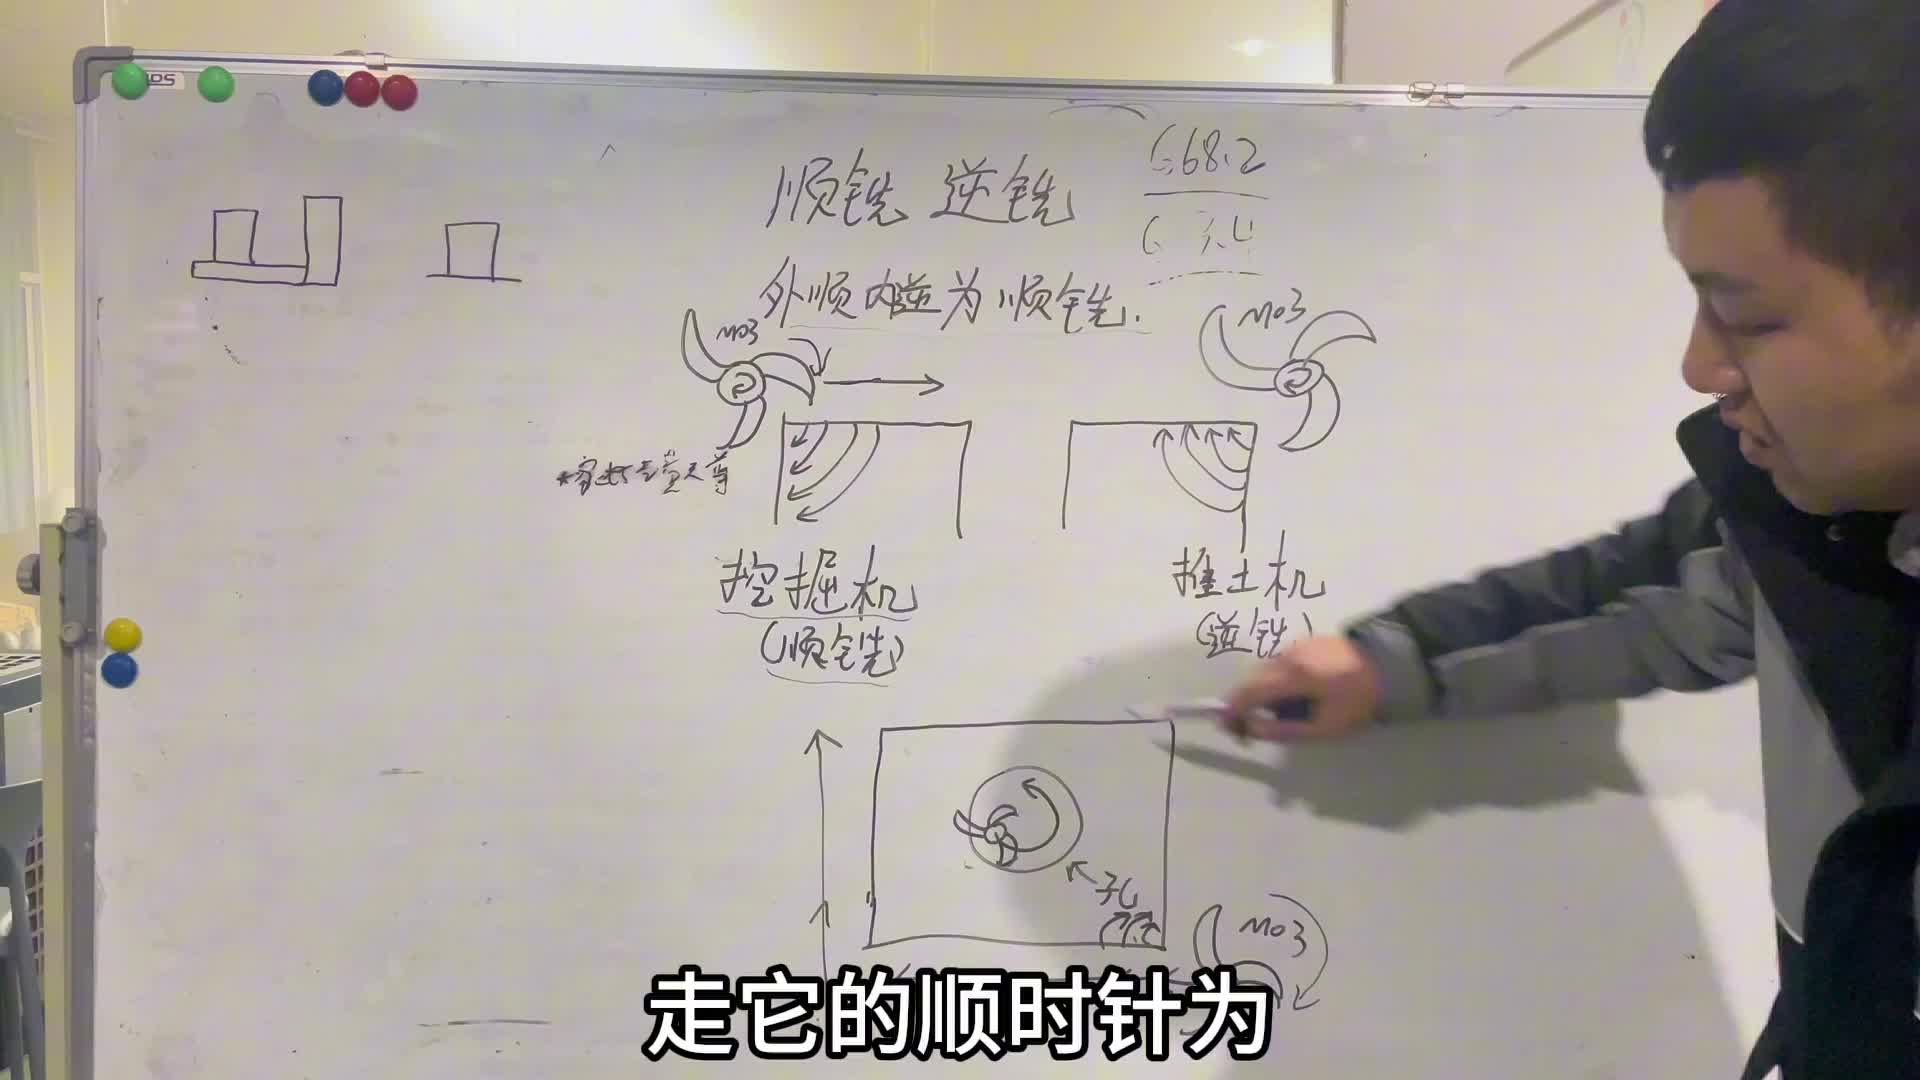 顺铣 逆铣
668.2
外顺内逆为顺铣.
M03
M03
挖掘机
推土机
(顺铣)
(逆铣)
孔
M03
走它的顺时针为